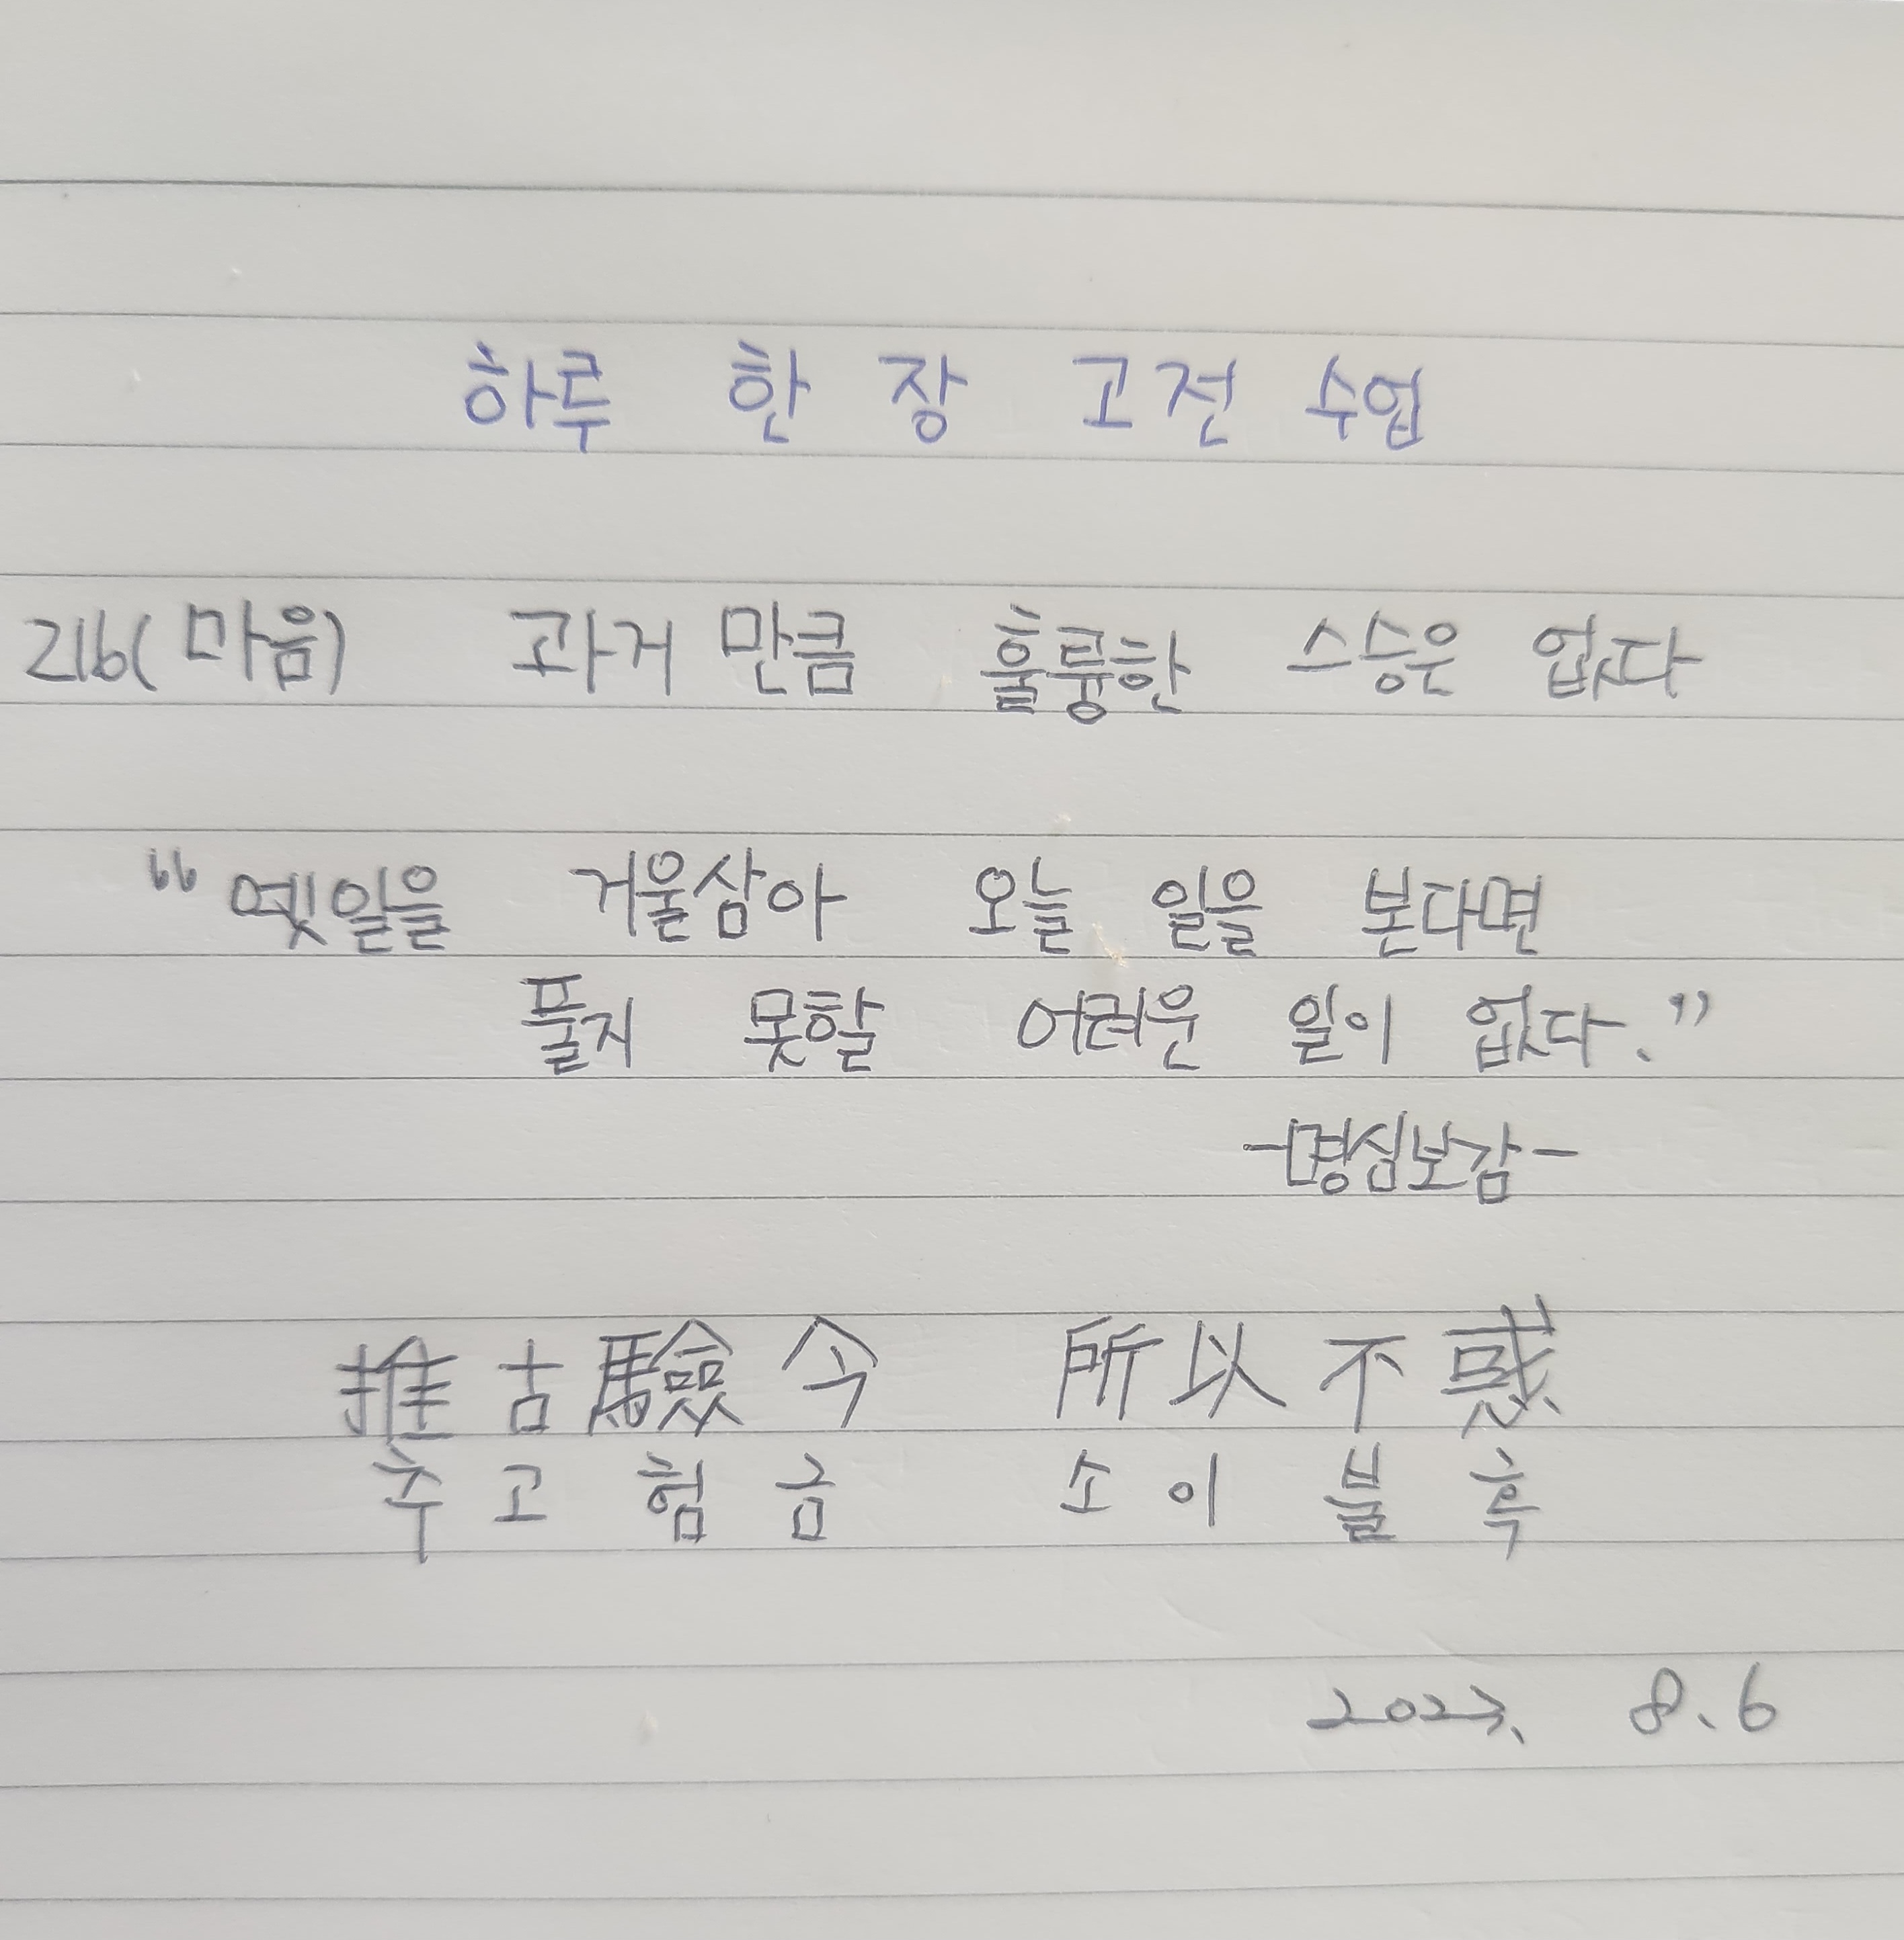 하루 한 장 고전 수업
216(마음) 과거 만큼 훌륭한 스승은 없다
“옛일을 거울삼아 오늘 일을 본다면
풀지 못할 어려운 일이 없다.”
-명심보감-
推古驗今 所以不惑
추고험금 소이불혹
2023. 8.6